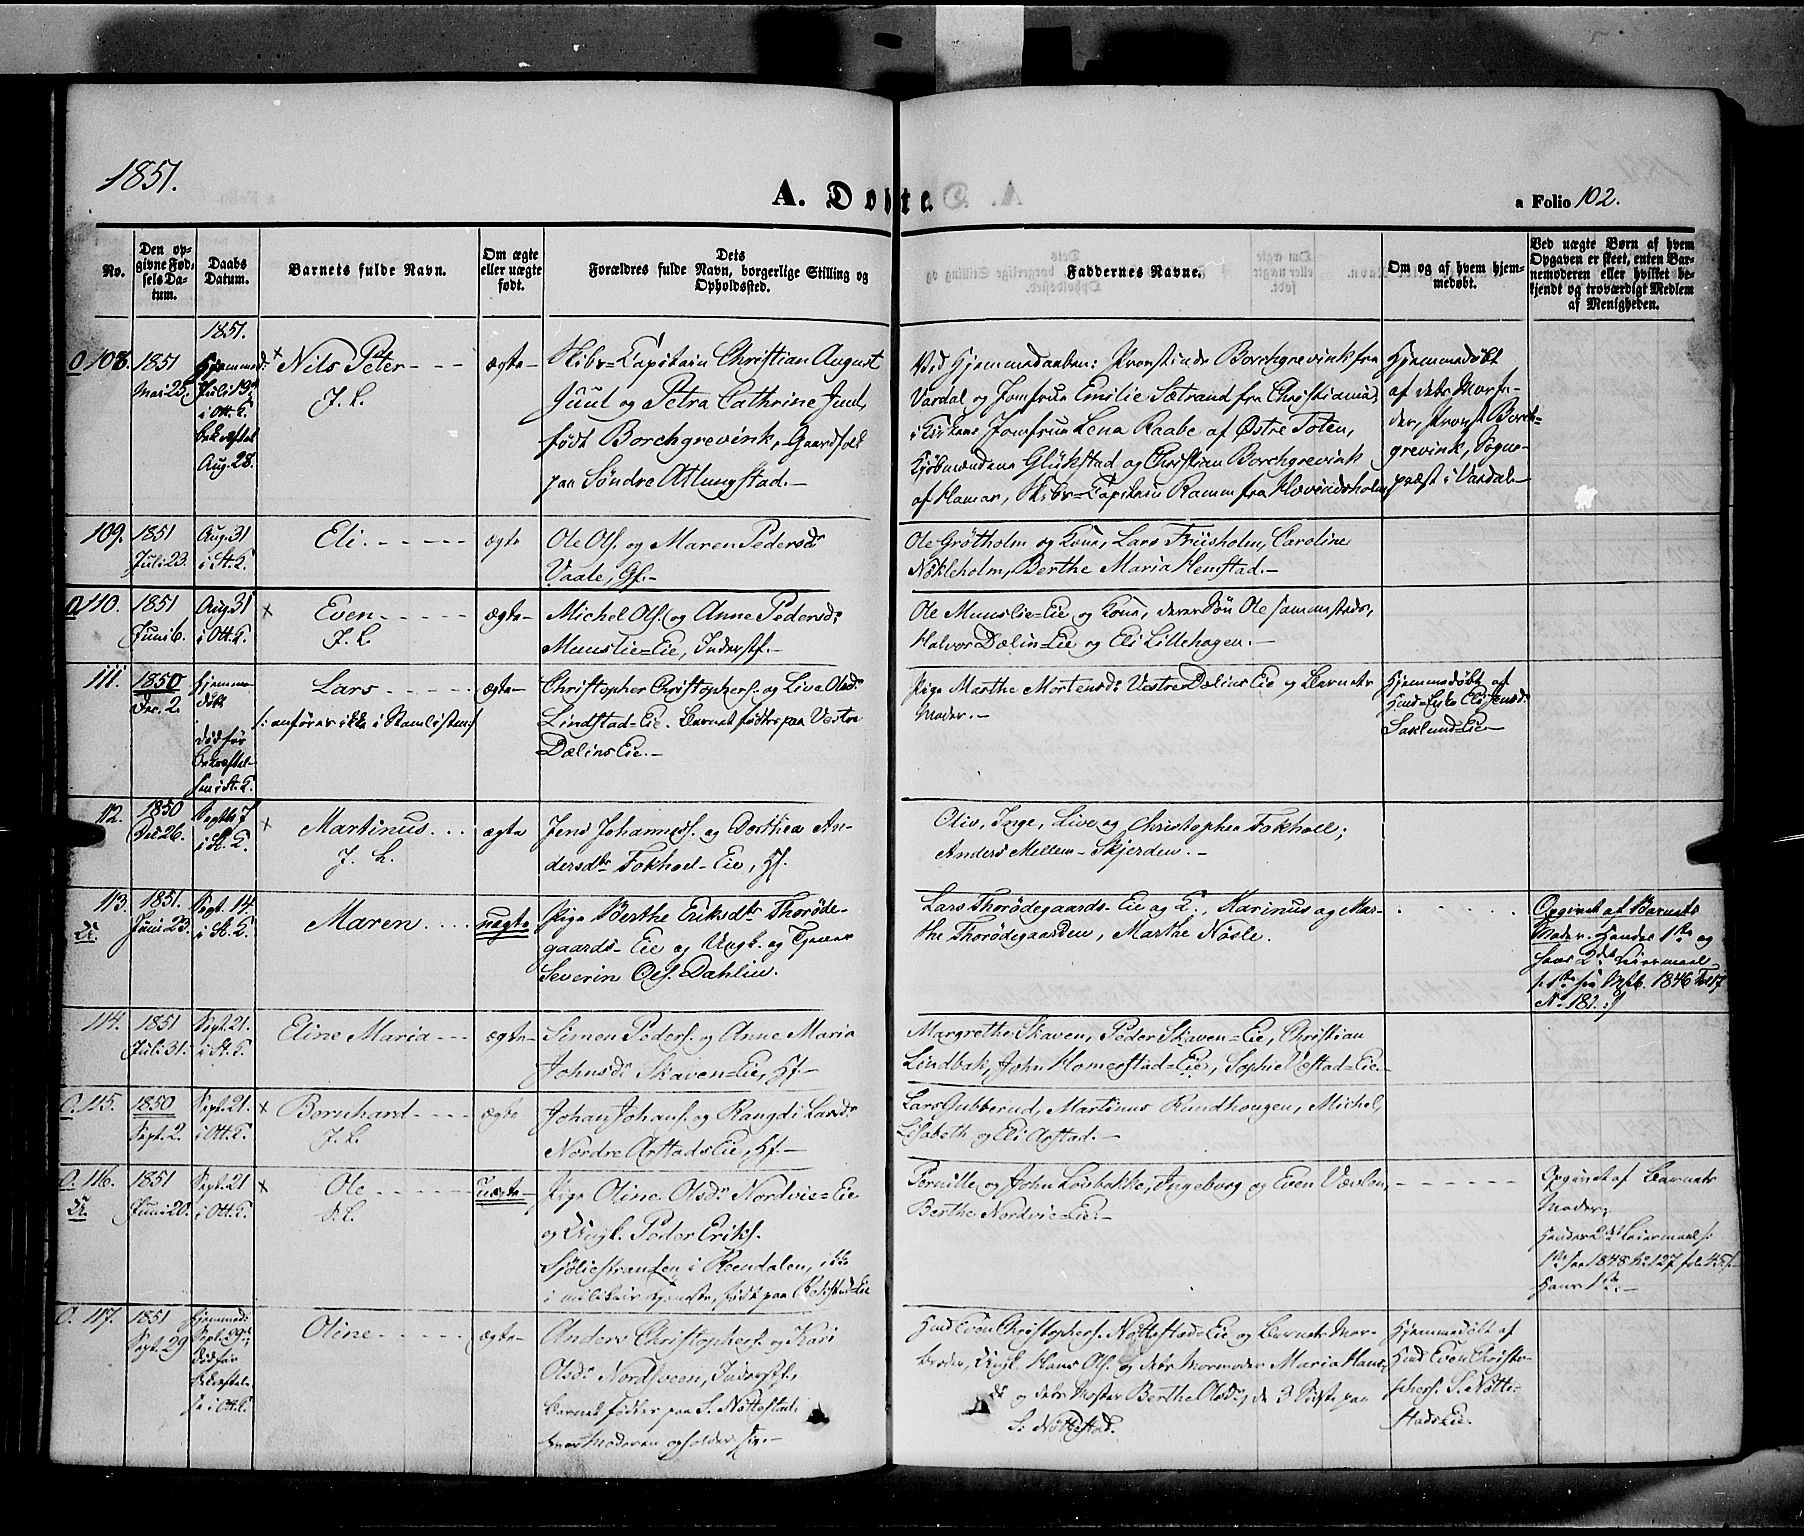 1851.
A. Døbte.
a Folio 102.
No.
Den opgivne Fødsels Datum.
Daabs Datum.
Barnets fulde Navn.
Om ægte eller uægte født.
Dets Forældres fulde Navn, borgerlige Stilling og Opholdssted.
Faddernes Navne.
Om og af hvem hjemmedøbt.
Ved uægte Børn af hvem Opgaven er skeet, enten Barnemoderen eller hvilket bekjendt og troværdigt Medlem af Menigheden.
1851.
O 108. 1851 Mai 25. Hjemmed: Juli 19de i Ott. K. bekræftet Aug. 28. × Nils Peter J. L. ægte
Skibs-Capitain Christian August
Juul og Petra Cathrine Juul,
født Borchgrevink, Gaardfolk
paa Søndre Atlungstad.
Ved Hjemmedaaben: Provstinde Borchgrevink fra
Vardal og Jomfrue Emilie Sætrand fra Christiania,
i Kirken Jomfrue Lena Raabe af Østre Toten,
Kjøbmændene Glükstad og Christian Borchgrevink
af Hamar, Skibs-Capitain Ramm fra Hovindsholm
Hjemmedøbt
af dets Morfader, Provst Borchgrevink, Sognepræst i Vardal
109. 1851 Juli 23. Aug. 31 i St. K. Eli ægte
Ole Ols. og Maren Pedersd:
Vaale, Gf.
Ole Grøtholm og Kone, Lars Friisholm, Caroline
Nökleholm, Berthe Maria Hemstad.
O 110. 1851 Juni 6. Aug. 31 i Ott. K. × Even J. L. ægte
Michel Ols. og Anne Pedersd:
Munslie-Eie, Inderstf.
Ole Munslie-Eie og Kone, deres Søn Ole sammesteds,
Halvor Dælin-Eie og Eli Lillehagen.
111. 1850 Dec. 2. Hjemmedøbt død før bekræftelsen i St. K. Lars ægte
/: anføres ikke i Stamlisten :/
Christopher Christophers. og Live Olsd:
Lindstad-Eie. Barnet fødtes paa Vestre
Dælins Eie.
Pige Marthe Mortensd: Vestre Dælins Eie og Barnets
Moder.
Hjemmedøbt af
Eli Jensd:
Saklund-Eie
112. 1850 Dec. 26. Septb. 7 i St. K. × Martinus J. L. ægte
Jens Johanness. og Dorthea Andersdtr Fokhol-Eie, Hf.
Oliv, Inge, Live og Christopher Fokholl;
Anders Mellem-Skjerden.
113. U. 1851. Juni 23. Sept. 14. i St. K. Maren uægte
Pige Berthe Eriksdtr Thorødegaards-Eie og Ungk. og Tjener
Severin Ols. Dahlin.
Lars Thorødegaards-Eie og K., Karinus og Marthe Thorødegaarden, Marthe Nøsle.
Opgivet af Barnets
Moder. Hendes 1ste og
hans 2det Leiermaal
1846 Fol. 17
No 181.
114. 1851 Juli 31. Sept. 21. i St. K. Eline Maria ægte
Simen Peders. og Anne Maria
Johnsd: Skaven-Eie, Hf.
Margrethe Skaven, Peder Skaven-Eie, Christian
Lindbak, John Homerstad-Eie, Sophie Væstad-Eie.
O. 115. 1850 Sept. 2. Sept. 21. i Ott. K. × Bernhard J. L. ægte
Johan Johans. og Rangdi Larsd:
Nordre Arstads Eie, Hf.
Lars Gubberud, Martinus Rundhougen, Michel,
Lisabeth og Eli Arstad.
O. 116. U. 1851 Juni 20. Sept. 21 i Ott. K. × Ole uægte
Pige Oline Olsd: Nordvie-Eie
og Ungk. Peder Eriks.
Sjøliestranden i Rendalen, ikke
i militair Tjeneste, født paa
Pernille og John Losbakke, Ingeborg og Even Vævlen,
Berthe Nordvie-Eie.
Opgivet af Barnets
Moder.
Hendes 2det Leiermaal
1848 No 127 fol. 45
Hans 1ste
O. 117. 1851 Sept. 29 Hjemmed: Sept. 29de død før bekræftelse i Ott. K. Oline ægte
Anders Christophers. og Kari
Olsd: Nordhveen, Inderstf.,
Barnet fødtes paa S. Nøttestad,
hvor Moderen opholder sig.
Even Christophers. Nøttestad-Eie og Barnets Morbroder, Ungk. Hans Ols. og dets Mormoder Maria Hansd: og dets Moster Berthe Olsd:, de 3 sidste paa
S. Nøttestad.
Hjemmedøbt af
Even Christophers. S. Nøttestads Eie.